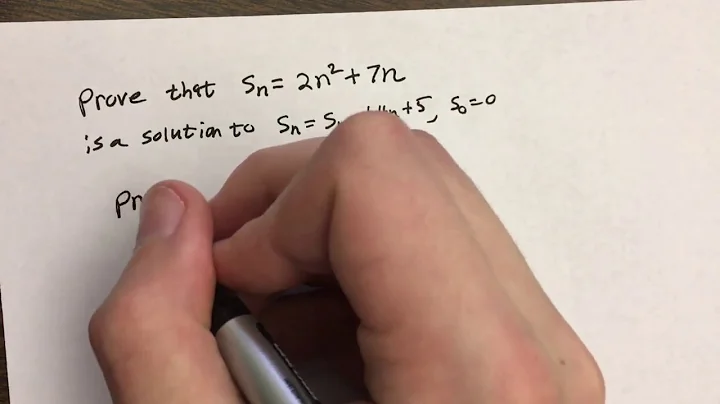 Prove that Sn = 2n² + 7n
is a solution to Sn = S n + 5, S0 = 0
Pr